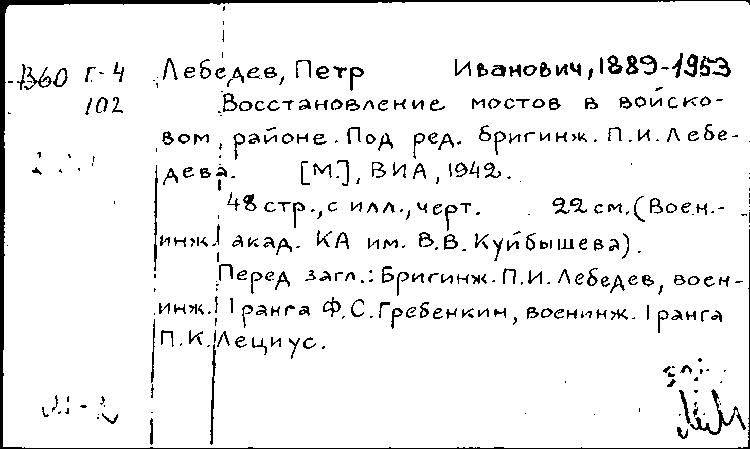 В60 Г-4 Лебедев, Петр Иванович, 1889-1953
102 Восстановление мостов в войско-
вом районе. Под ред. бригинж. П.И. Лебе-
дева. [М.], ВИА, 1942.
48 стр., с илл., черт. 22 см. (Воен.-
инж. акад. КА им. В.В. Куйбышева).
Перед загл.: Бригинж. П.И. Лебедев, воен-
инж. I ранга Ф.С. Гребенкин, военинж. I ранга
П.К. Лециус.